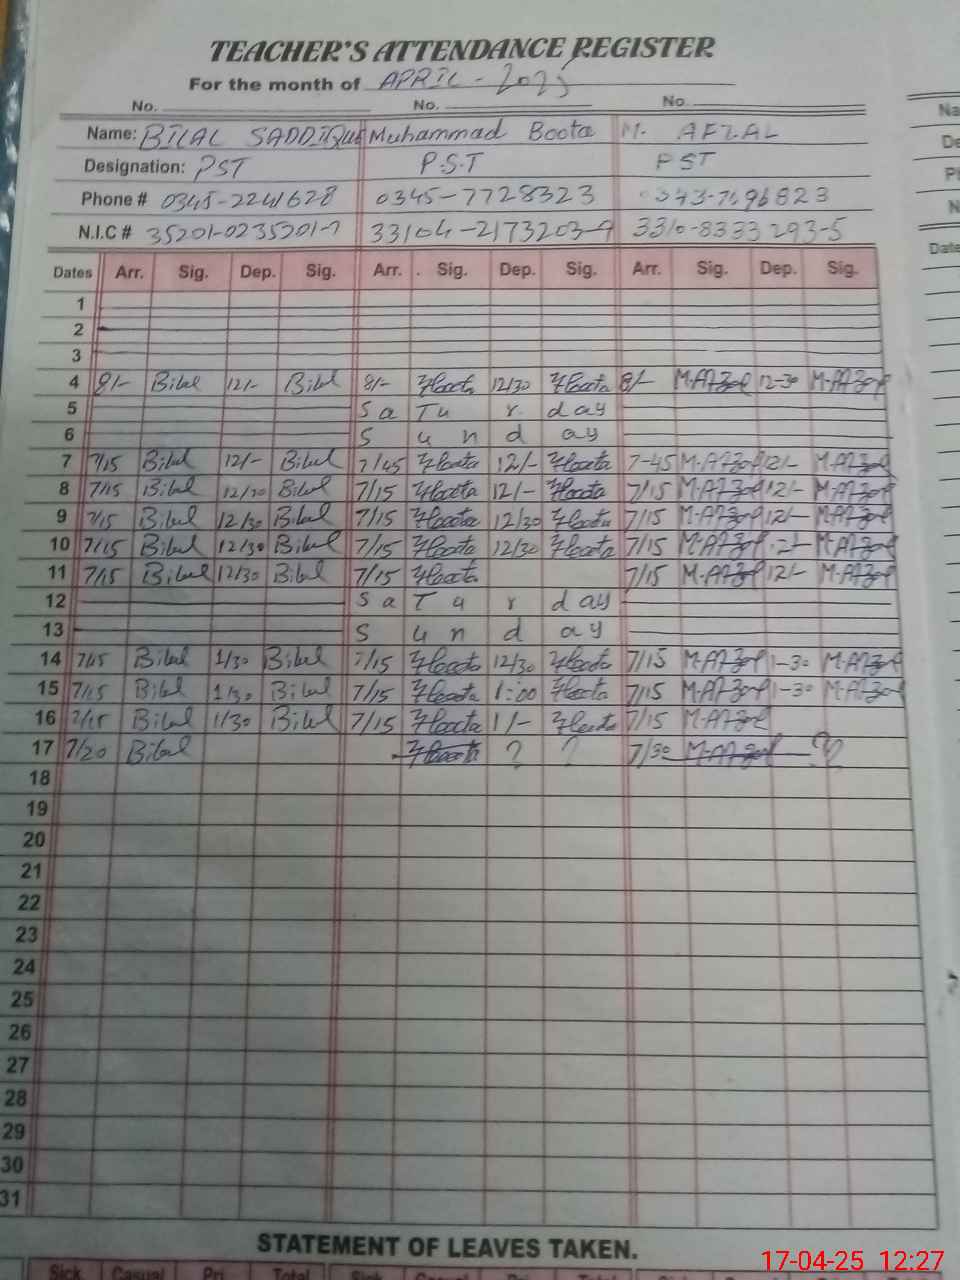 TEACHER'S ATTENDANCE REGISTER
For the month of APRIL - 2025
No. No. No.
Name: BILAL SADDIQUE Muhammad Boota M. AFZAL
Designation: PST P.S.T PST
Phone # 0345-2241628 0345-7728323 0343-7696823
N.I.C # 35201-0235201-7 33104-2173203-9 3310-8333293-5
Dates Arr. Sig. Dep. Sig. Arr. Sig. Dep. Sig. Arr. Sig. Dep. Sig.
1
2
3
4 8/- Bilal 12/- Bilal 8/- Boota 12/30 Boota 8/- M.AFzal 12-30 M.AFzal
5 SaTurday
6 Sunday
7 7/15 Bilal 12/- Bilal 7/45 Boota 12/- Boota 7-45 M.AFzal 12/- M.AFzal
8 7/15 Bilal 12/30 Bilal 7/15 Boota 12/- Boota 7/15 M.AFzal 12/- M.AFzal
9 7/15 Bilal 12/30 Bilal 7/15 Boota 12/30 Boota 7/15 M.AFzal 12/- M.AFzal
10 7/15 Bilal 12/30 Bilal 7/15 Boota 12/30 Boota 7/15 M.AFzal 12/- M.AFzal
11 7/15 Bilal 12/30 Bilal 7/15 Boota 7/15 M.AFzal 12/- M.AFzal
12 SaTurday
13 Sunday
14 7/15 Bilal 1/30 Bilal 7/15 Boota 12/30 Boota 7/15 M.AFzal 1-30 M.AFzal
15 7/15 Bilal 1/30 Bilal 7/15 Boota 1:00 Boota 7/15 M.AFzal 1-30 M.AFzal
16 7/15 Bilal 1/30 Bilal 7/15 Boota 1/- Boota 7/15 M.AFzal
17 7/20 Bilal Boota ? ? 7/30 M.AFzal ?
18
19
20
21
22
23
24
25
26
27
28
29
30
31
STATEMENT OF LEAVES TAKEN.
Sick Casual Pri. Total Sick Casual Pri. Total
17-04-25 12:27